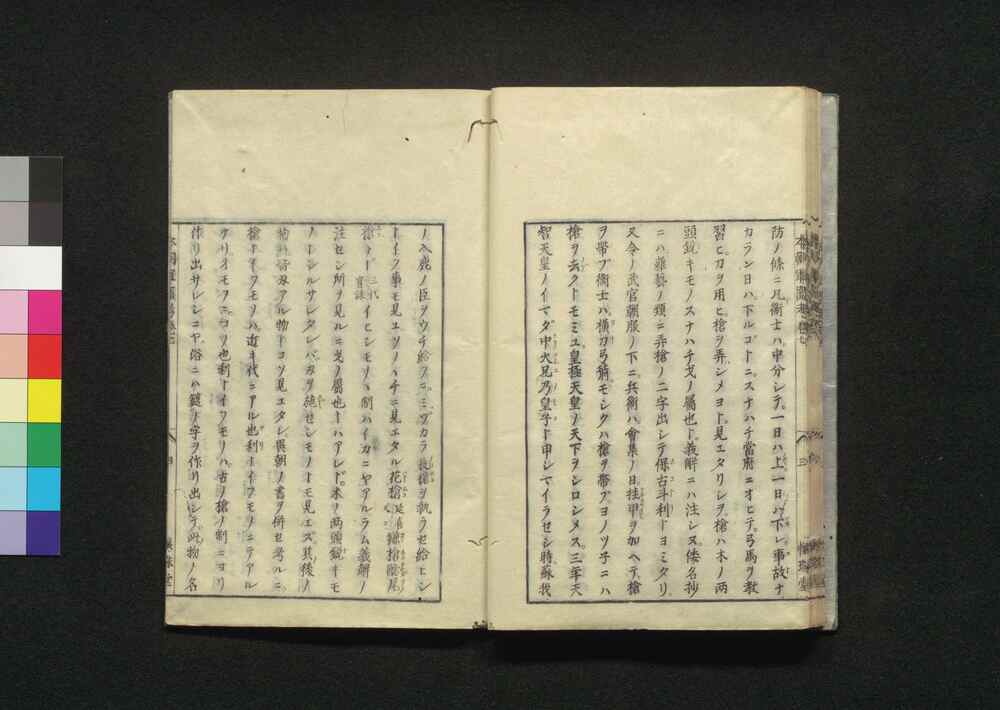 防ノ條ニ凡衞士ハ中分シテ一日ハ上一日ハ下レ事故ナ
カラン日ハ下ルゴトニスナハチ當府ニオヒテ弓馬ヲ教
習ヒ刀ヲ用ヒ槍ヲ弄シメヨト見エタリシヲ槍ハ木ノ兩
頭鋭キモノスナハチ戈ノ屬也ト義解ニハ注シヌ倭名抄
ニハ雜藝ノ類ニ弄槍ノ二字出シテ保古斗利トヨミタリ
又令ノ武官朝服ノ下ニ兵衞ハ會集ノ日挂甲ヲ加ヘテ槍
ヲ帶ブ衞士ハ橫刀弓箭モシクハ槍ヲ帶ブヨノツ子ニハ
槍ヲ去クトモミユ皇極天皇ノ天下ヲシロシメス三年天
智天皇ノイマダ中大兄乃皇子ト申シマイラセシ時蘇我
ノ入鹿ノ臣ヲウチ給フニミヅカラ長槍ヲ執ラセ給ヒシ
トイフ事モ見エツノハチニ見エタル花槍
槍ナド三代實録イヒシモノヽ制ハイカニヤアルラム義解ノ
注セシ所ヲ見ルニ戈ノ屬也トハアレド木ヲ兩頭鋭キモ
ノトシルサレタレバ刃ヲ施セシモノトモ見エズ其後ノ
物ニ槍アル物トコソ見エタレ異朝ノ書ヲ併セ考ルニ
槍トイフモノハ近キ代ニアル也利トイフモノニテアル
ケリオモフニヤリ也利トイフモノハ古ノ槍ノ制ニヨリ
作リ出サレシニヤ俗ニハ鑓ノ字ヲ作リ出シテ兩物ノ名